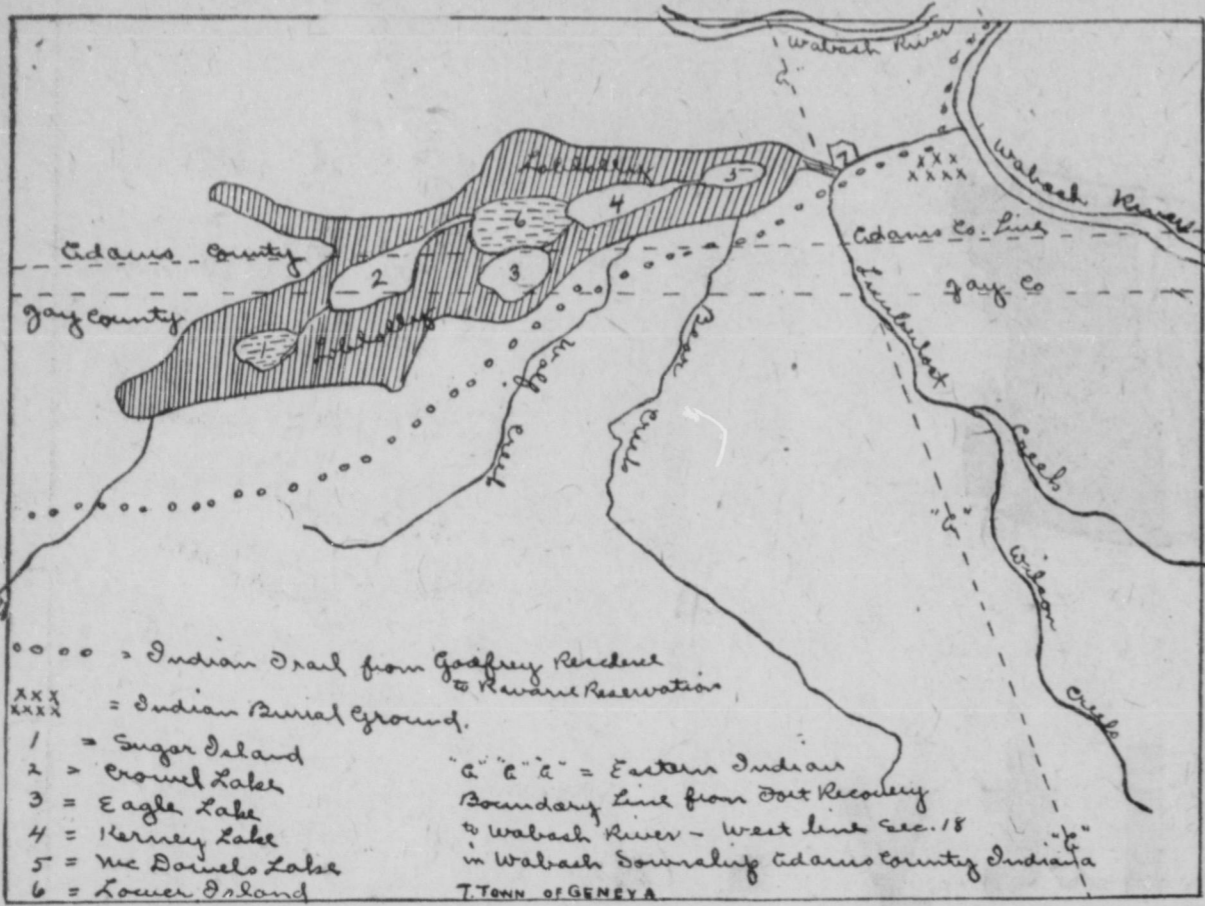 Wabash River
"G"
Loblolly
7
x x x
x x x x
Wabash River
5
4
6
Adams County
Adams Co. Line
3
2
Jay County
Jay Co
Limberlost
Loblolly
1
Wolf
Creek
Bear
Creek
Creek
"G"
Wilson
Creek
o o o o = Indian Trail from Godfrey Reserve
to Revare Reservation
x x x
x x x x = Indian Burial Ground.
1 = Sugar Island
2 = Crowel Lake
3 = Eagle Lake
4 = Kerney Lake
5 = Mc Dowels Lake
6 = Lower Island
"G" "G" "G" = Eastern Indian
Boundary Line from Fort Recovery
to Wabash River - West line Sec. 18
in Wabash Township Adams County Indiana
"G"
7. TOWN OF GENEVA